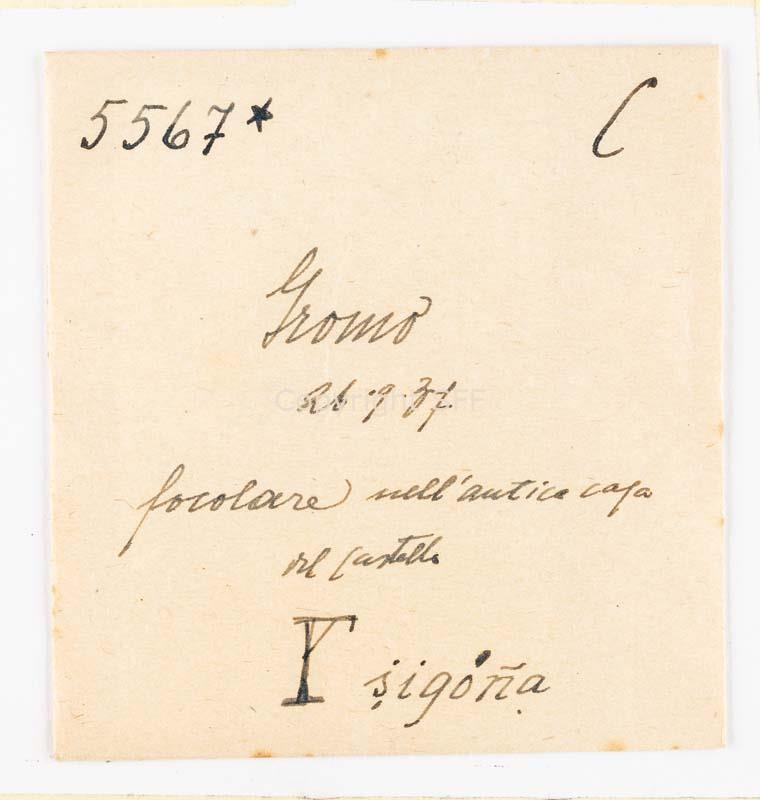 5567* C
Gromo
26.9.37.
focolare nell'antica casa
del castello
ṣigóña̤